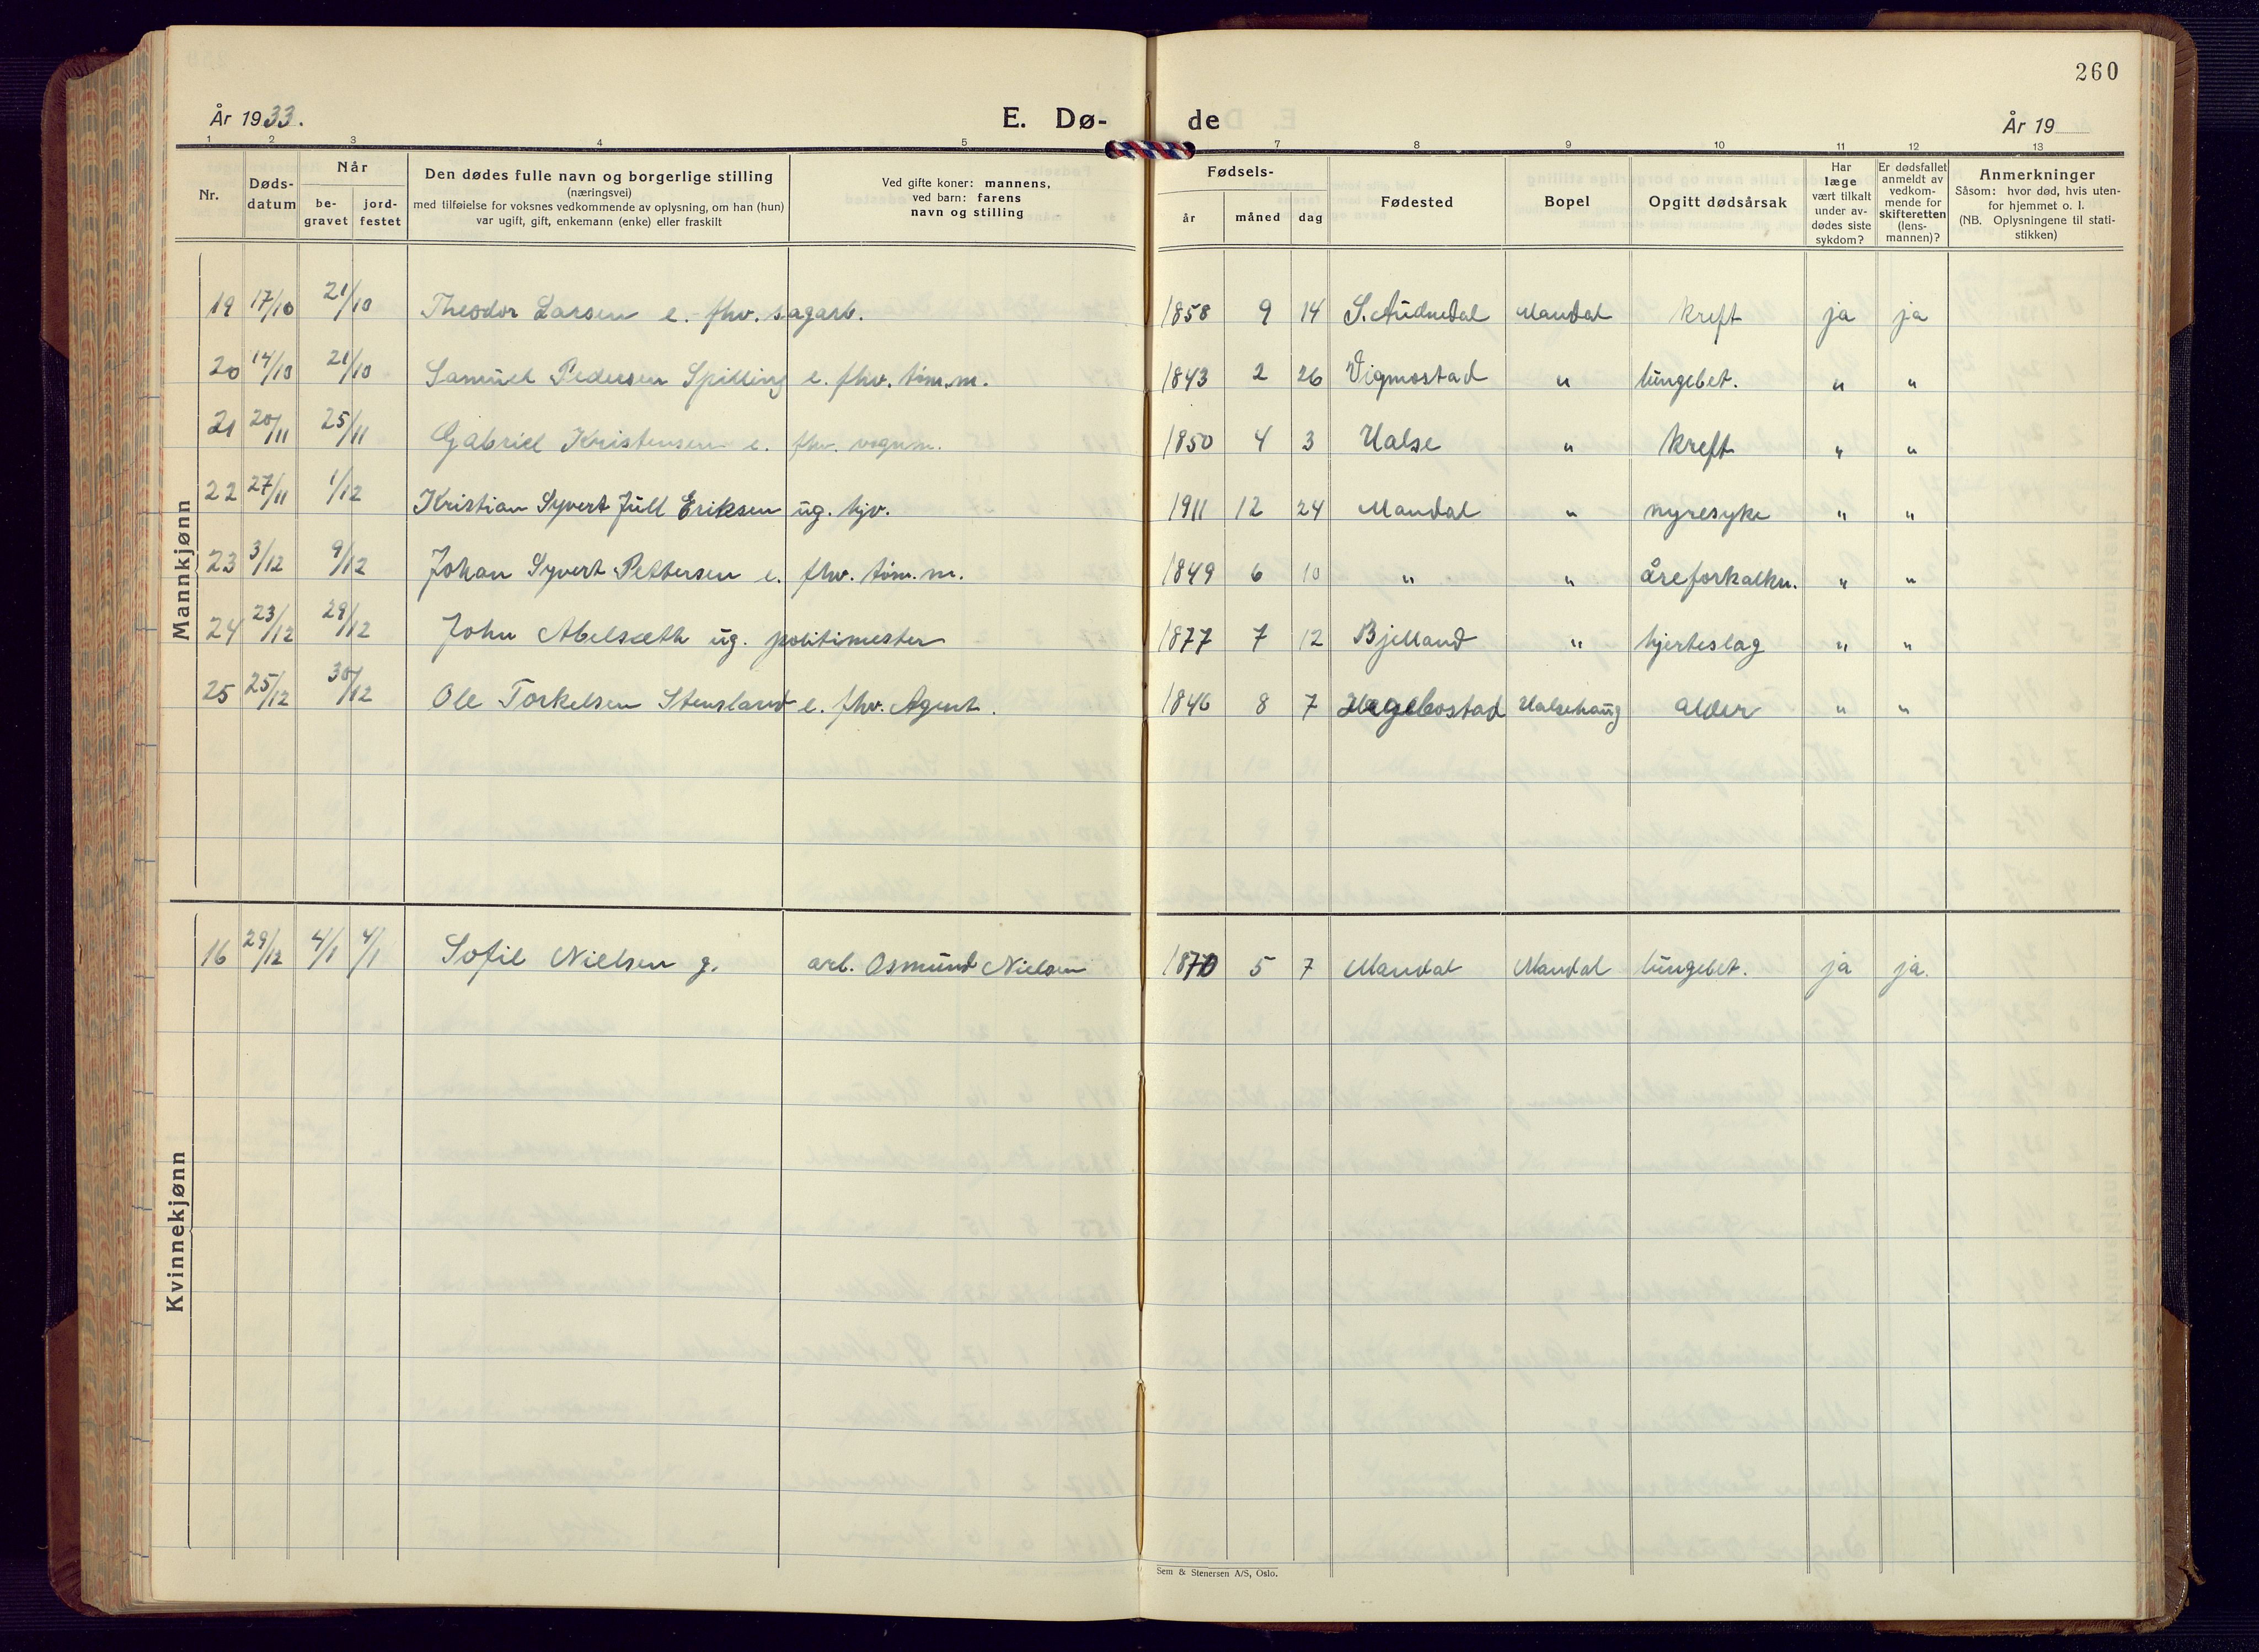 260
År 1933.
E. Dø- de
År 19
1 2 3 4 5 7 8 9 10 11 12 13
Nr.
Døds-
datum
Når
be-
gravet
jord-
festet
Den dødes fulle navn og borgerlige stilling
(næringsvei)
med tilføielse for voksnes vedkommende av oplysning, om han (hun)
var ugift, gift, enkemann (enke) eller fraskilt
Ved gifte koner: mannens,
ved barn: farens
navn og stilling
Fødsels-
år måned dag
Fødested
Bopel
Opgitt dødsårsak
Har
læge
vært tilkalt
under av-
dødes siste
sykdom?
Er dødsfallet
anmeldt av
vedkom-
mende for
skifteretten
(lens-
mannen)?
Anmerkninger
Såsom: hvor død, hvis uten-
for hjemmet o. l.
(NB. Oplysningene til stati-
stikken)
Mannkjønn
19 17/10 21/10 Theodor Larsen e. fhv. sagarb. 1858 9 14 S. Audnedal Mandal kreft ja ja
20 14/10 21/10 Samuel Pedersen Spilling e. fhv. tøm.m. 1843 2 26 Vigmostad " lungebet. " "
21 20/11 25/11 Gabriel Kristensen e. fhv. vognm. 1850 4 3 Halse " kreft " "
22 27/11 1/12 Kristian Syvert Jull Eriksen ug. hjv. 1911 12 24 Mandal " nyresyke " "
23 3/12 9/12 Johan Syvert Pettersen e. fhv. tøm.m. 1849 6 10 " " åreforkalkn. " "
24 23/12 29/12 John Abelsæth ug. politimester 1877 7 12 Bjelland " hjerteslag " "
25 25/12 30/12 Ole Torkelsen Stensland e. fhv. Agent. 1846 8 7 Hægebostad Halsehaug alder " "
Kvinnekjønn
16 29/12 4/1 4/1 Sofie Nielsen g. arb. Osmund Nielsen 1870 5 7 Mandal Mandal lungebet. ja ja.
Sem & Stenersen A/S, Oslo.